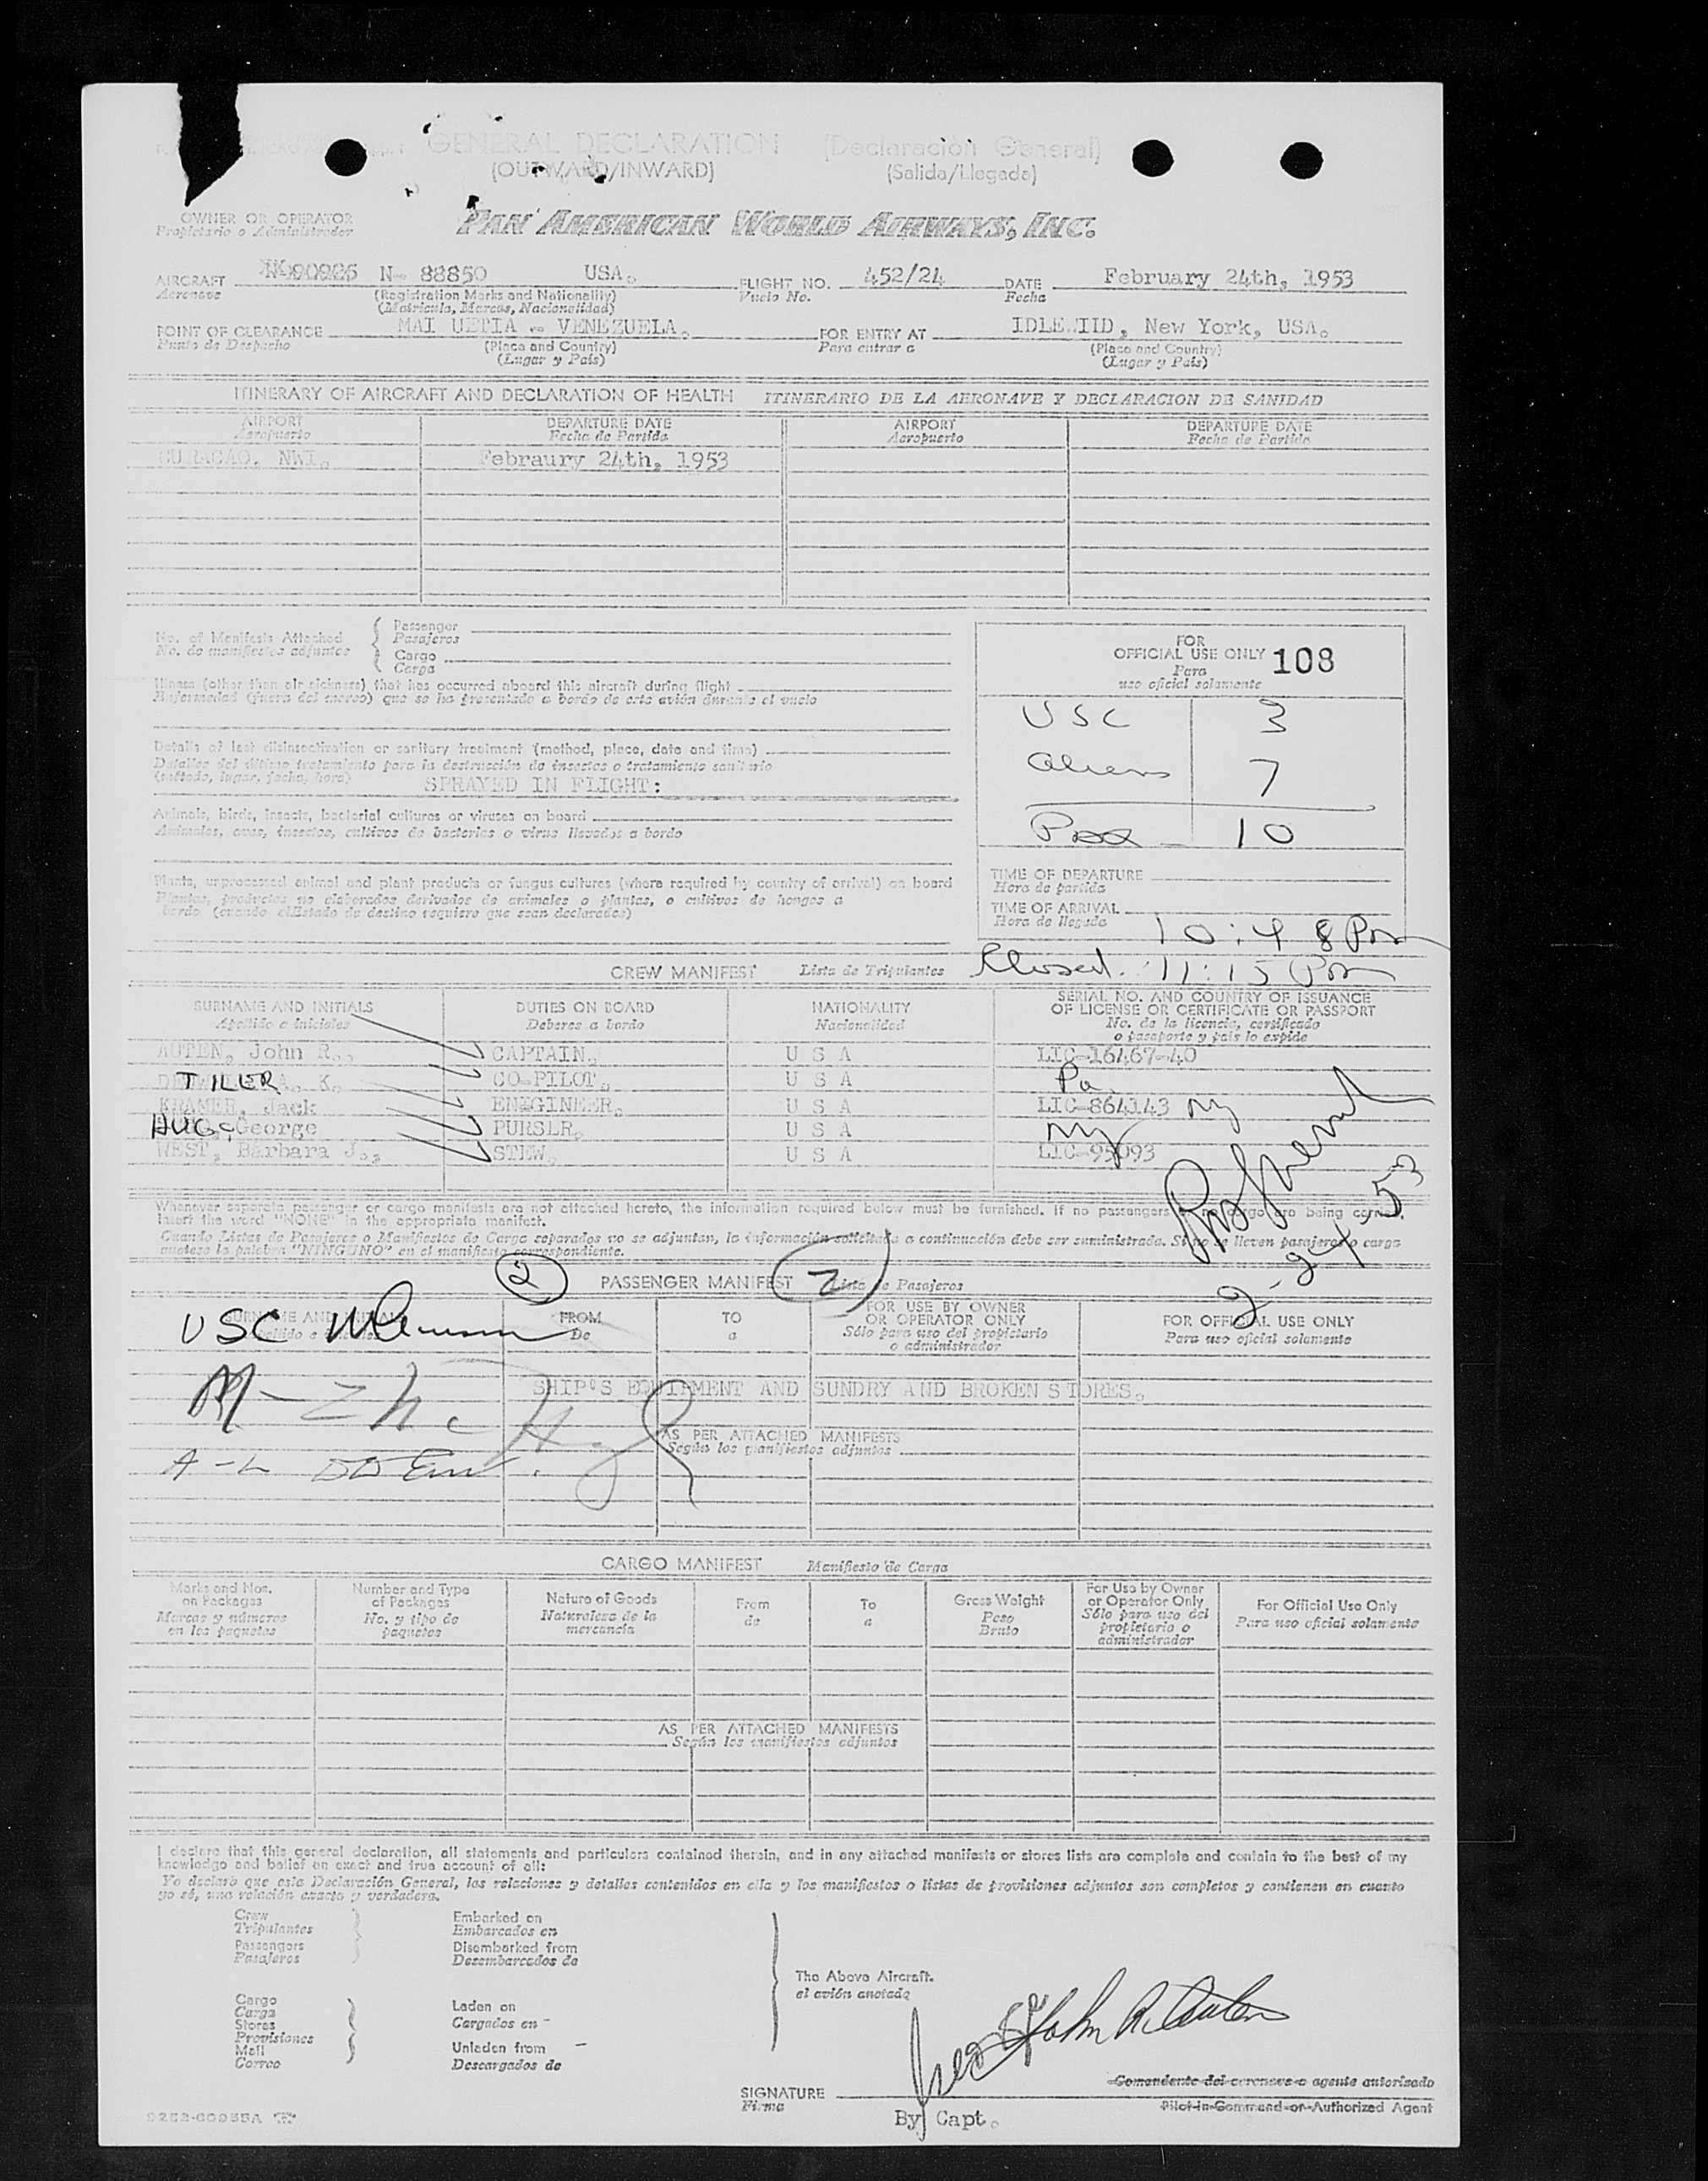 GENERAL DECLARATION (Declaración General)
(OUTWARD/INWARD) (Salida/Llegada)
OWNER OR OPERATOR
Propietario o Administrador
PAN AMERICAN WORLD AIRWAYS, INC.
AIRCRAFT N- 88850 USA. FLIGHT NO. 452/24 DATE February 24th, 1953
Aeronave (Registration Marks and Nationality) Vuelo No. Fecha
(Matricula, Marcas, Nacionalidad)
POINT OF CLEARANCE MAI UETIA - VENEZUELA. FOR ENTRY AT IDLEWIID, New York, USA.
Punto de Despacho (Place and Country) Para entrar a (Place and Country)
(Lugar y País) (Lugar y País)
ITINERARY OF AIRCRAFT AND DECLARATION OF HEALTH ITINERARIO DE LA AERONAVE Y DECLARACION DE SANIDAD
AIRPORT DEPARTURE DATE AIRPORT DEPARTURE DATE
Aeropuerto Fecha de Partida Aeropuerto Fecha de Partida
CURACAO, NWI. Febraury 24th, 1953
No. of Manifests Attached
No. de manifiestos adjuntos
Passenger
Pasajeros
Cargo
Carga
FOR
OFFICIAL USE ONLY 108
Para
uso oficial solamente
Illness (other than air sickness) that has occurred aboard this aircraft during flight
Enfermedad (fuera del mareo) que se ha presentado a bordo de este avión durante el vuelo
USC 3
Aliens 7
Pax - 10
Details of last disinsectization or sanitary treatment (method, place, date and time)
Detalles del último tratamiento para la destrucción de insectos o tratamiento sanitario
(método, lugar, fecha, hora)
SPRAYED IN FLIGHT:
Animals, birds, insects, bacterial cultures or viruses on board
Animales, aves, insectos, cultivos de bacterias o virus llevados a bordo
Plants, unprocessed animal and plant products or fungus cultures (where required by country of arrival) on board
Plantas, productos no elaborados derivados de animales o plantas, o cultivos de hongos a
bordo (cuando el Estado de destino requiere que sean declarados)
TIME OF DEPARTURE
Hora de partida
TIME OF ARRIVAL
Hora de llegada 10:48 Pm
Closed. 11:15 Pm
CREW MANIFEST Lista de Tripulantes
SURNAME AND INITIALS DUTIES ON BOARD NATIONALITY SERIAL NO. AND COUNTRY OF ISSUANCE
OF LICENSE OR CERTIFICATE OR PASSPORT
Apellido e iniciales Deberes a bordo Nacionalidad No. de la licencia, certificado
o pasaporte y país lo expide
AUTEN, John R., CAPTAIN, U S A LIC-16467-40
TILLER A. K. CO-PILOT, U S A Pa.
KRAMER, Jack ENGINEER, U S A LIC-864143 NY
HUG, George PURSER, U S A NY
WEST, Barbara J., STEW, U S A LIC-95093
2-24-53
Whenever separate passenger or cargo manifests are not attached hereto, the information required below must be furnished. If no passengers or no cargo are being carried,
insert the word "NONE" in the appropriate manifest.
Cuando Listas de Pasajeros o Manifiestos de Carga separados no se adjuntan, la información solicitada a continuación debe ser suministrada. Si no se lleven pasajeros o carga
anótese la palabra "NINGUNO" en el manifiesto correspondiente.
2 PASSENGER MANIFEST 2 Lista de Pasajeros
USC
SURNAME AND FROM TO FOR USE BY OWNER
OR OPERATOR ONLY FOR OFFICIAL USE ONLY
De a Sólo para uso del propietario
o administrador Para uso oficial solamente
SHIP'S EQUIPMENT AND SUNDRY AND BROKEN STORES.
AS PER ATTACHED MANIFESTS
Según los manifiestos adjuntos
A-L
CARGO MANIFEST Manifiesto de Carga
Marks and Nos.
on Packages
Marcas y números
en los paquetes
Number and Type
of Packages
No. y tipo de
paquetes
Nature of Goods
Naturaleza de la
mercancía
From
de
To
a
Gross Weight
Peso
Bruto
For Use by Owner
or Operator Only
Sólo para uso del
propietario o
administrador
For Official Use Only
Para uso oficial solamente
AS PER ATTACHED MANIFESTS
Según los manifiestos adjuntos
I declare that this general declaration, all statements and particulars contained therein, and in any attached manifests or stores lists are complete and contain to the best of my
knowledge and belief an exact and true account of all:
Yo declaro que esta Declaración General, las relaciones y detalles contenidos en ella y los manifiestos o listas de provisiones adjuntos son completos y contienen en cuanto
yo sé, una relación exacta y verdadera.
Crew
Tripulantes
Passengers
Pasajeros
Embarked on
Embarcados en
Disembarked from
Desembarcados de
Cargo
Carga
Stores
Provisiones
Mail
Correo
Laden on
Cargados en
Unladen from
Descargados de
The Above Aircraft.
el avión anotado
John R. Auten
SIGNATURE
Firma
Comandante del aeronave o agente autorizado
Pilot-in-Command-or-Authorized Agent
By Capt.